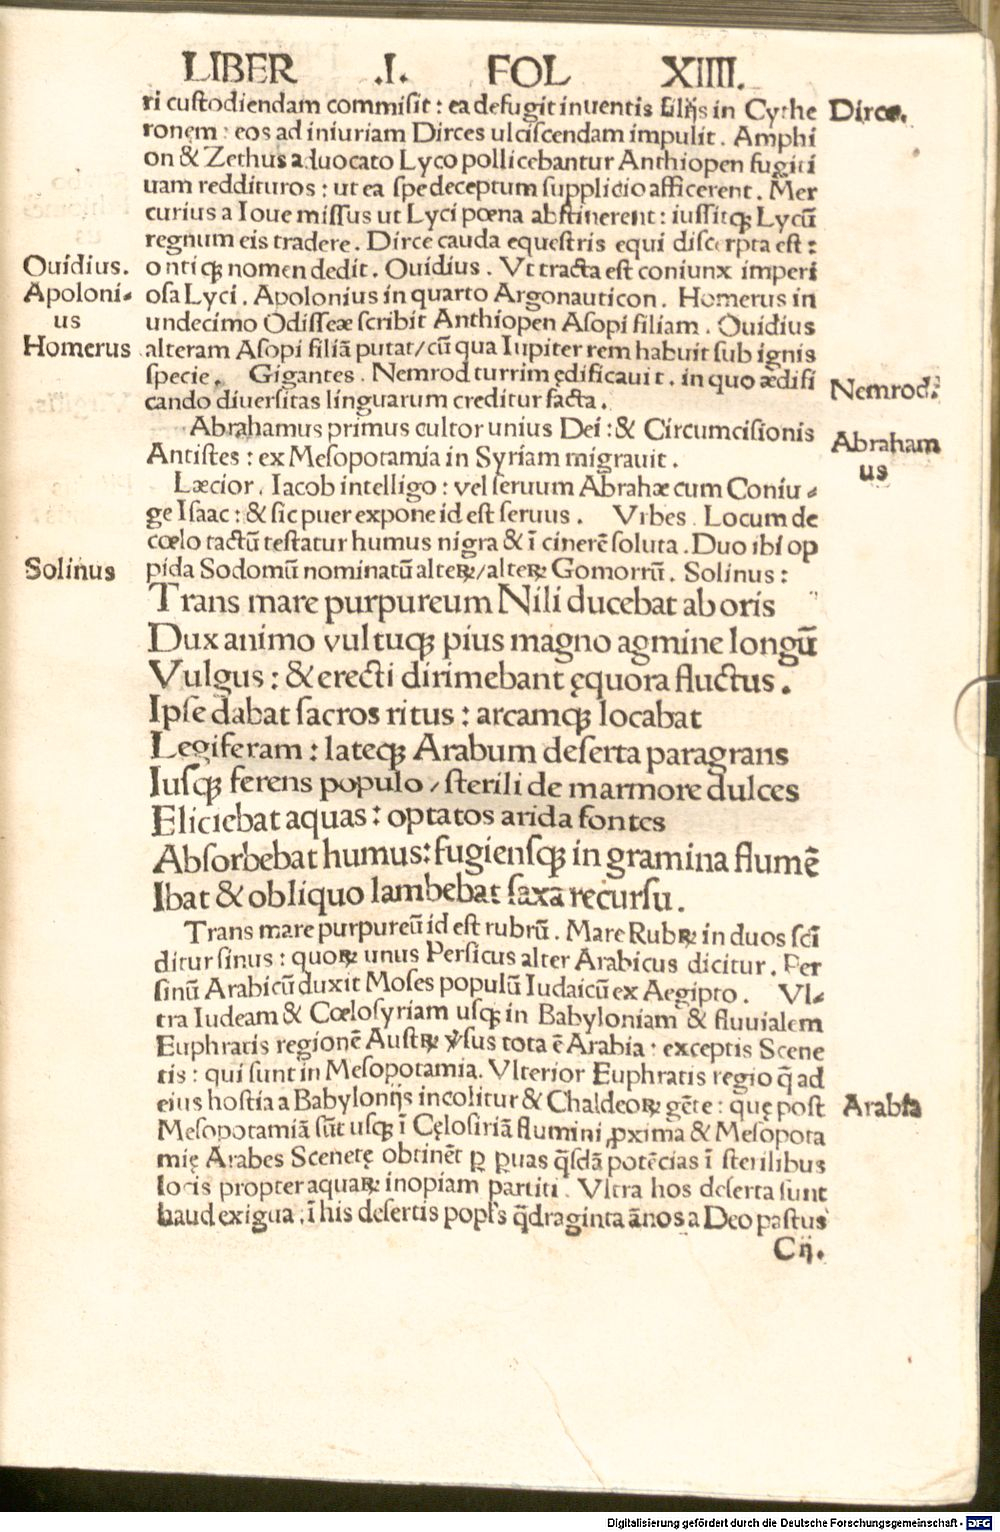 LIBER .I. FOL XIIII.
ri custodiendam commisit : ea defugit inuentis filijs in Cythe
Dirce.
ronem : eos ad iniuriam Dirces ulciscendam impulit . Amphi
on & Zethus aduocato Lyco pollicebantur Anthiopen fugiti
uam reddituros : ut ea spe deceptum supplicio afficerent . Mer
curius a Ioue missus ut Lyci pœna abstinerent : iussitqꝫ Lycū
regnum eis tradere . Dirce cauda equestris equi discerpta est :
Ouidius.
o ntiqꝫ nomen dedit . Ouidius . Vt tracta est coniunx imperi
Apoloni-
osa Lyci . Apolonius in quarto Argonauticon . Homerus in
us
undecimo Odisseæ scribit Anthiopen Asopi filiam . Ouidius
Homerus
alteram Asopi filiā putat / cū qua Iupiter rem habuit sub ignis
specie . Gigantes . Nemrod turrim ędificauit . in quo ædifi
Nemrod:
cando diuersitas linguarum creditur facta .
Abrahamus primus cultor unius Dei : & Circumcisionis
Abraham
Antistes : ex Mesopotamia in Syriam migrauit .
us
Læcior . Iacob intelligo : vel seruum Abrahæ cum Coniu -
ge Isaac : & sic puer expone id est seruus . Vrbes . Locum de
cœlo tactū testatur humus nigra & ī cinerē soluta . Duo ibi op
Solinus
pida Sodomū nominatū alteꝝ / alteꝝ Gomorrū . Solinus :
Trans mare purpureum Nili ducebat ab oris
Dux animo vultuqꝫ pius magno agmine longū
Vulgus : & erecti dirimebant ęquora fluctus .
Ipse dabat sacros ritus : arcamqꝫ locabat
Legiferam : lateqꝫ Arabum deserta paragrans
Iusqꝫ ferens populo / sterili de marmore dulces
Eliciebat aquas : optatos arida fontes
Absorbebat humus : fugiensqꝫ in gramina flumē
Ibat & obliquo lambebat saxa recursu .
Trans mare purpureū id est rubrū . Mare Rubꝝ in duos sci
ditur sinus : quoꝝ unus Persicus alter Arabicus dicitur . Per
sinū Arabicū duxit Moses populū Iudaicū ex Aegipto . Vl-
tra Iudeam & Cœlosyriam usqꝫ in Babyloniam & fluuialem
Euphratis regionē Austꝝ v̓sus tota ē Arabia : exceptis Scene
tis : qui sunt in Mesopotamia . Vlterior Euphratis regio q̄ ad
eius hostia a Babylonijs incolitur & Chaldeoꝝ gēte : quę post
Arabia
Mesopotamiā sūt usqꝫ ī Cęlosiriā flumini ꝓxima & Mesopota
mię Arabes Scenetę obtinēt ꝑ ꝑuas q̄sdā potēcias ī sterilibus
locis propter aquaꝝ inopiam partiti . Vltra hos deserta sunt
haud exigua . ī his desertis popl's q̄draginta ānos a Deo pastus
Cij.
Digitalisierung gefördert durch die Deutsche Forschungsgemeinschaft - DFG